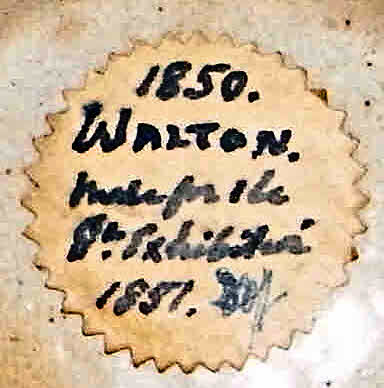 1850.
WALTON.
Made for the
Gt. Exhibition
1851.